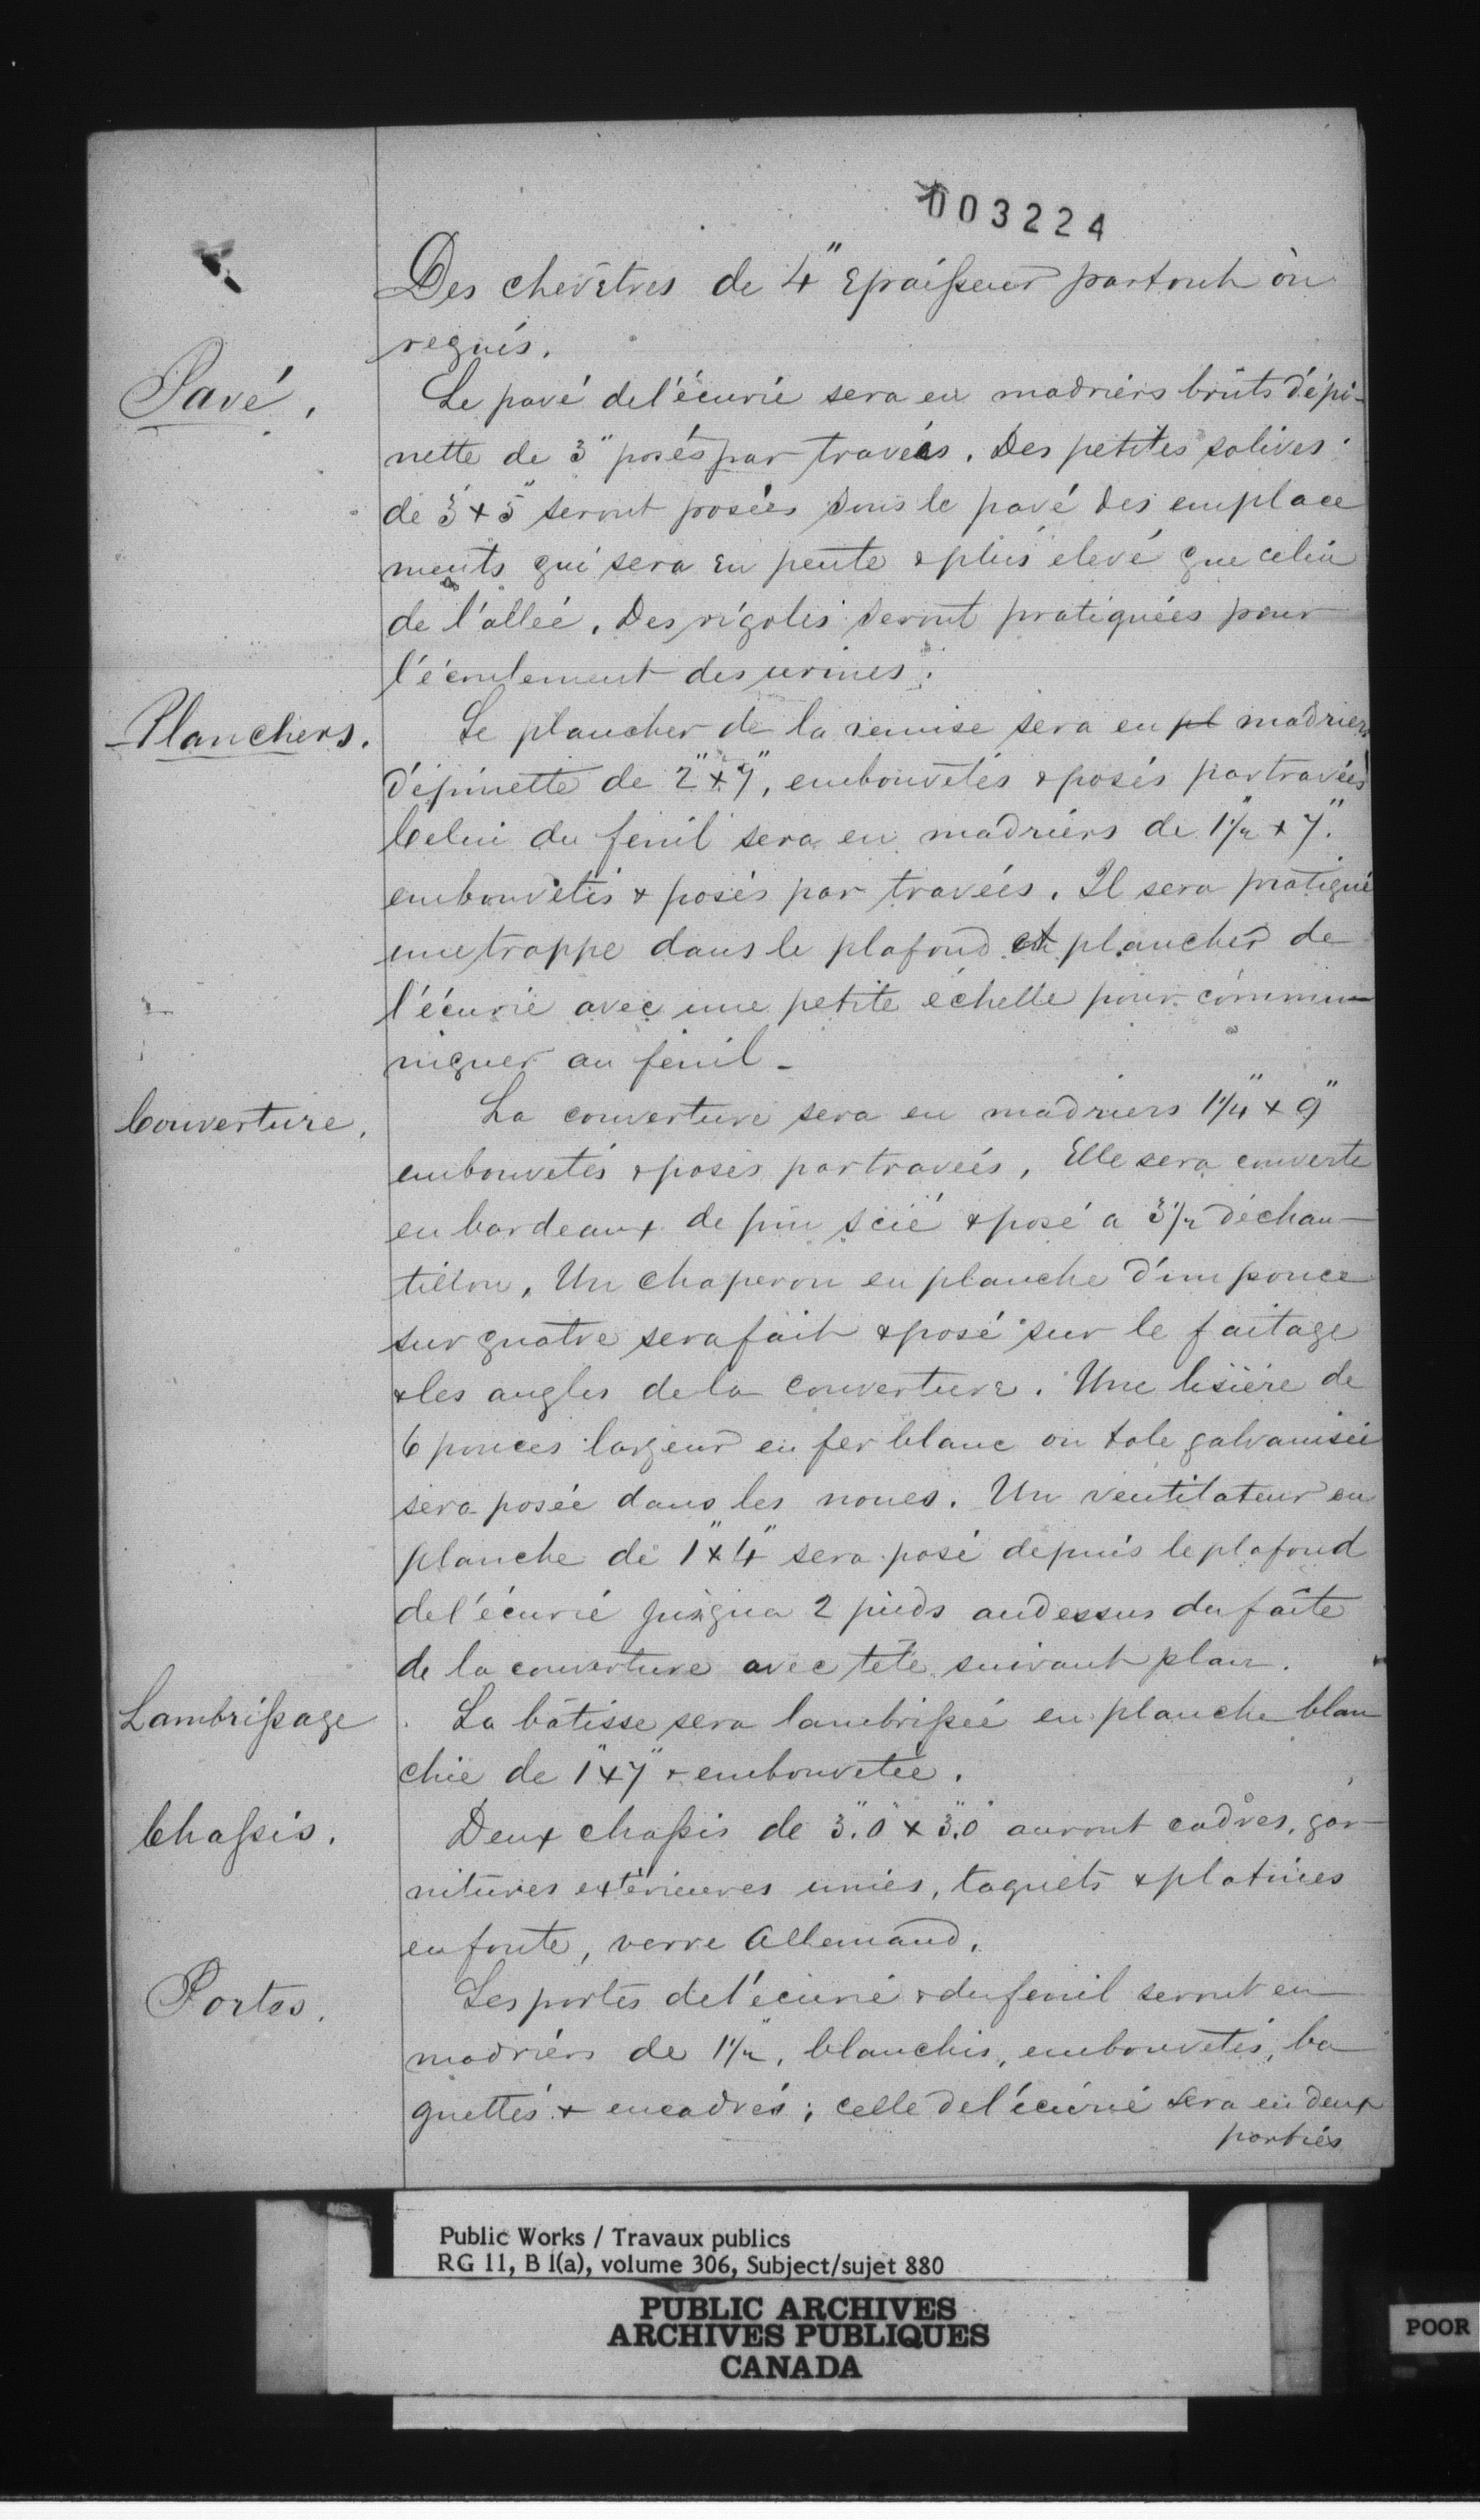 003224
Des chevêtres de 4" Epaisseur partout où
requis.
Pavé.
Le pavé de l'écurie sera en madriers brûts d'épi-
nette de 3" posés par travées. Des petites solives
de 3" x 5" seront posées sous le pavé des emplace
ments qui sera en pente & plus élevé que celui
de l'allée. Des rigoles seront pratiquées pour
l'écoulement des urines.
Planchers.
Le plancher de la remise sera en pl madriers
d'épinette de 2" x 9", embouvetés & posés par travées
Celui du fenil sera en madriers de 1 1/2" x 7".
embouvetés & posés par travées. Il sera pratiqué
une trappe dans le plafond et plancher de
l'écurie avec une petite échelle pour commu-
niquer au fenil -
Couverture.
La couverture sera en madriers 1 1/4" x 9"
embouvetés & posés par travées, Elle sera couverte
en bardeaux de pin scié & posé a 3 1/2 d'échan-
tillon. Un chaperon en planche d'un pouce
sur quatre sera fait & posé sur le faitage
& les angles de la couverture. Une lisière de
6 pouces largeur en fer blanc ou tole galvanisée
sera posée dans les noues. Un ventilateur en
planche de 1" x 4" sera posé depuis le plafond
de l'écurie jusqua 2 pieds audessus du faîte
de la couverture avec tête suivant plan.
Lambrissage
La bâtisse sera lambrissée en planche blan
chie de 1" x 7" & embouvetée.
Chassis.
Deux chassis de 3".0" x 3".0" auront cadres, gar-
nitures extérieures unies, taquets & platines
en fonte, verre Allemand.
Portes.
Les portes de l'écurie & du fenil seront en
madriers de 1 1/2", blanchis, embouvetés, ba
guettés & encadrés; celle de l'écurie sera en deux
parties
Public Works / Travaux publics
RG 11, B 1(a), volume 306, Subject/sujet 880
PUBLIC ARCHIVES
ARCHIVES PUBLIQUES
CANADA
POOR